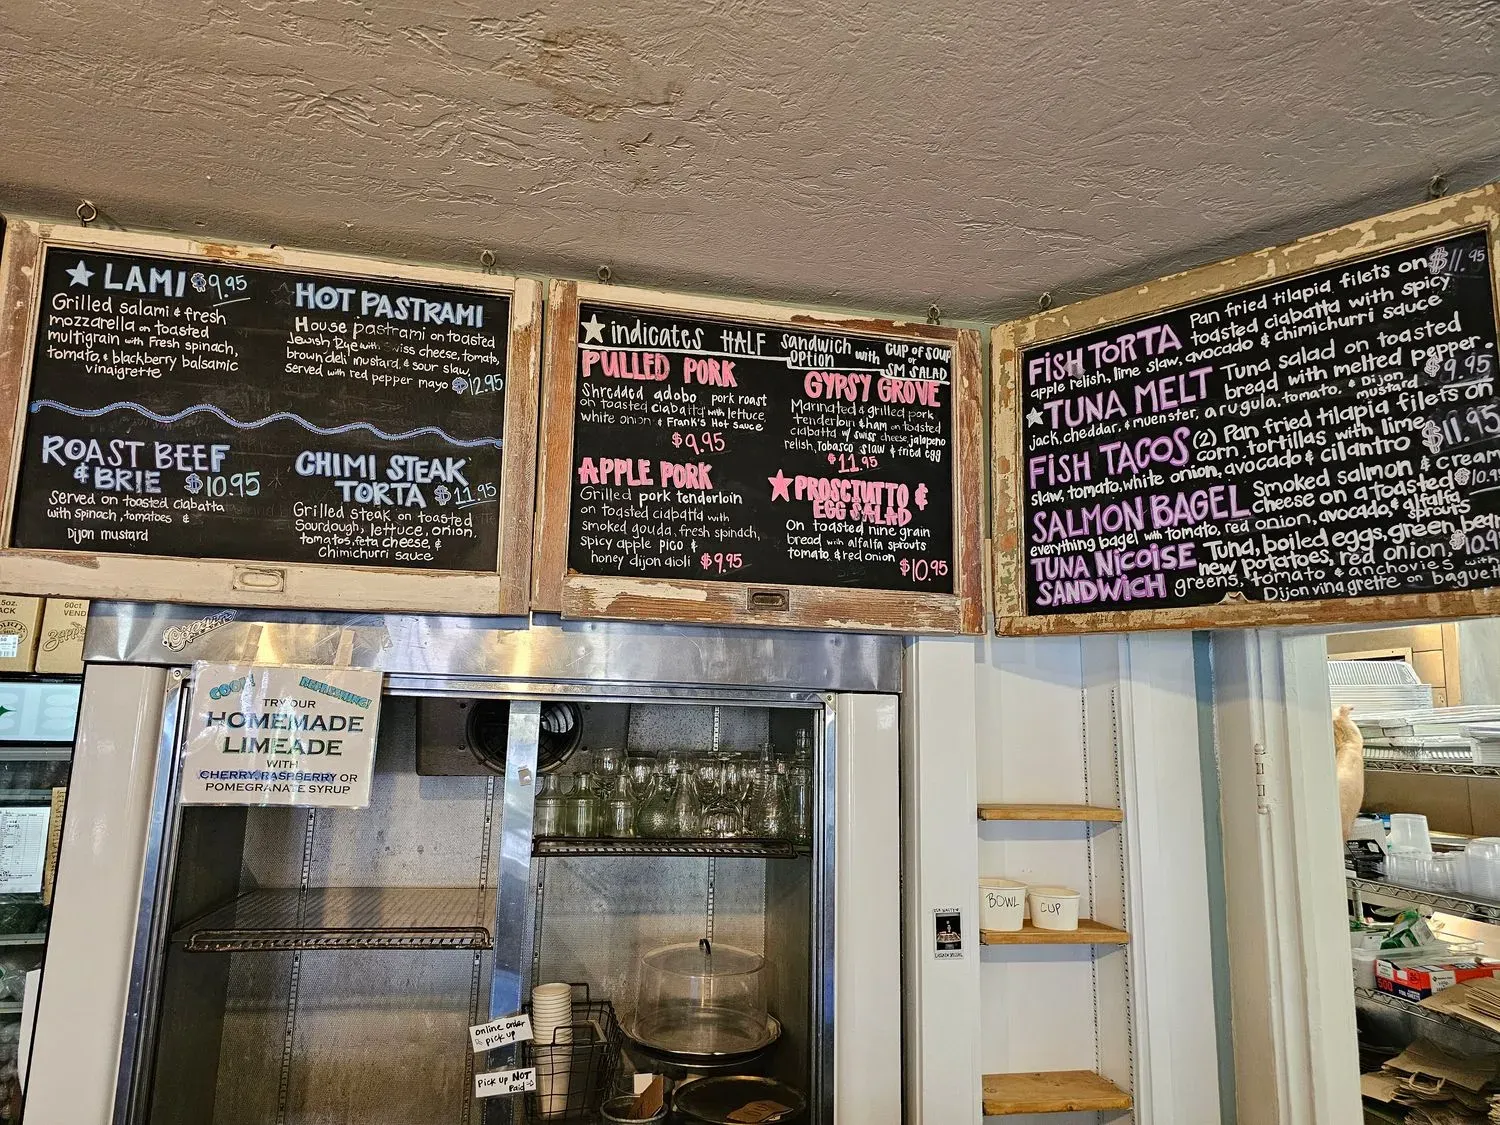 ★ LAMI $9.95
Grilled salami & fresh
mozzarella on toasted
multigrain with Fresh spinach,
tomato, & blackberry balsamic
vinaigrette
HOT PASTRAMI
House pastrami on toasted
Jewish Rye with Swiss cheese, tomato,
brown deli mustard, & sour slaw,
served with red pepper mayo $12.95
ROAST BEEF
& BRIE $10.95
Served on toasted ciabatta
with spinach, tomatoes &
Dijon mustard
CHIMI STEAK
TORTA $11.95
Grilled steak on toasted
Sourdough, lettuce, onion,
tomatos, feta cheese, &
Chimichurri sauce
★ indicates HALF Sandwich option with CUP OF SOUP
or
SM SALAD
PULLED PORK
Shredded adobo pork roast
on toasted ciabatta with lettuce,
white onion & Frank's Hot sauce
$9.95
GYPSY GROVE
Marinated & grilled pork
tenderloin & ham on toasted
ciabatta w/ swiss cheese, jalapeño
relish, Tobasco slaw & fried egg
$11.95
APPLE PORK
Grilled pork tenderloin
on toasted ciabatta with
smoked gouda, fresh spinach,
spicy apple pico &
honey dijon aioli $9.95
★ PROSCIUTTO &
EGG SALAD
On toasted nine grain
bread with alfalfa sprouts
tomato, & red onion $10.95
FISH TORTA Pan fried tilapia filets on $11.95
toasted ciabatta with spicy
apple relish, lime slaw, avocado & chimichurri sauce
★ TUNA MELT Tuna salad on toasted
bread with melted pepper
jack, cheddar, & muenster, arugula, tomato, & Dijon mustard $9.95
FISH TACOS (2) Pan fried tilapia filets on
corn tortillas with lime
slaw, tomato, white onion, avocado & cilantro $11.95
SALMON BAGEL Smoked salmon & cream
cheese on a toasted
everything bagel with tomato, red onion, avocado, & alfalfa sprouts
TUNA NICOISE
SANDWICH
Tuna, boiled eggs, green bean
new potatoes, red onion,
greens, tomato & anchovies with
Dijon vinaigrette on baguette
COOL! REFRESHING!
TRY OUR
HOMEMADE
LIMEADE
WITH
CHERRY, RASPBERRY OR
POMEGRANATE SYRUP
online order
pick up
Pick up NOT
Paid
BOWL
CUP
500